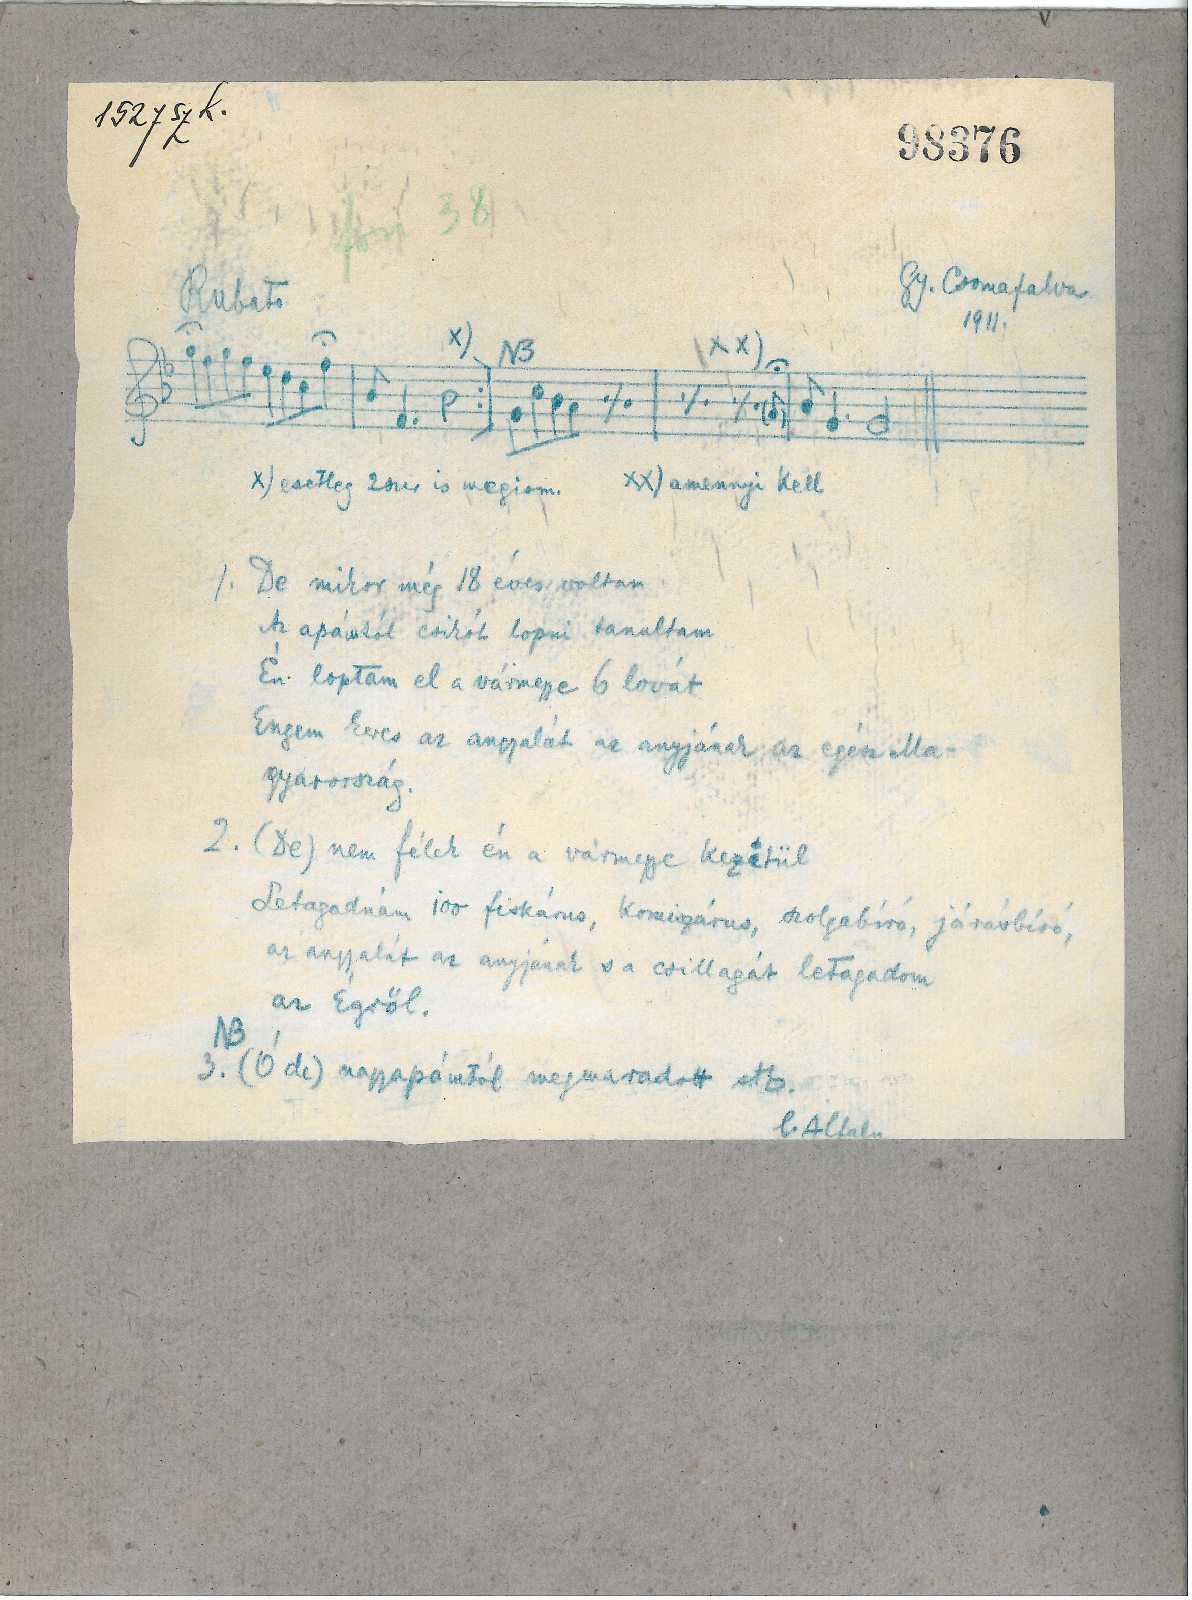 1527 szk.
98376
fon 38
Rubato
Gy. Csomafalva
1911.
x)
NB
xx)
x) esetleg 2szer is megism.
xx) amennyi kell
1. De mikor még 18 éves voltam
Az apámtól csikót lopni tanultam
Én loptam el a vármegye 6 lovát
Engem keres az angyalát az anyjának az egész Ma-
gyarország.
2. (De) nem félek én a vármegye kezétül
Letagadnám 100 fiskárus, komiszárus, szolgabíró, járásbíró,
az angyalát az anyjának s a csillagát letagadom
az Égről.
NB
3. (Ó de) nagyapámtól megmaradott stb.